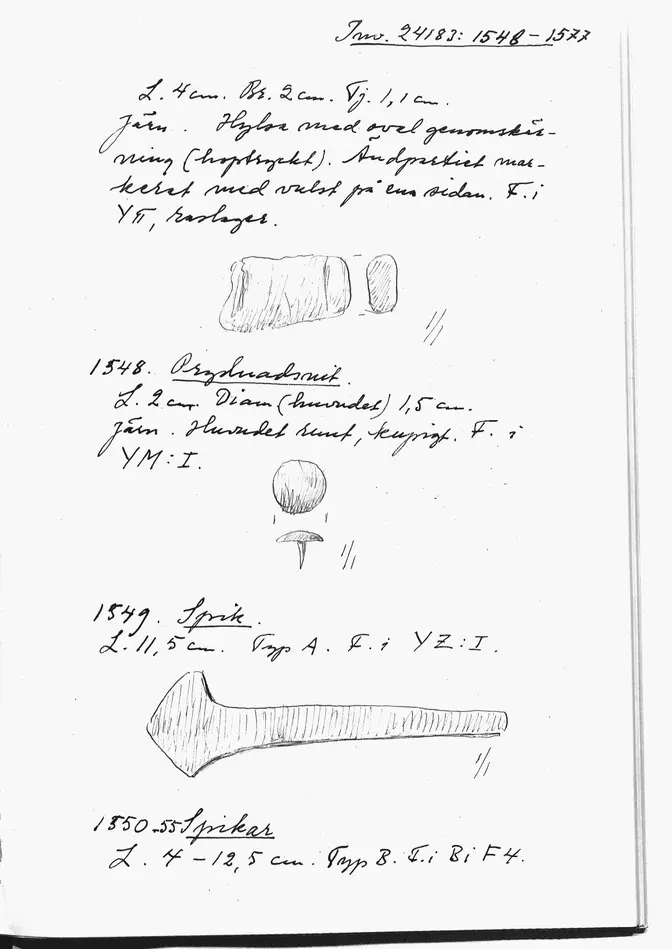 Inv. 24183: 1548-1577
L. 4 cm. Br. 2 cm. Tj. 1,1 cm.
Järn. Hylsa med oval genomskär-
ning (hoptryckt). Ändpartiet mar-
kerat med vulst på ena sidan. F. i
YÄ, raslager.
1/1
1548. Prydnadsnit.
L. 2 cm. Diam (huvudet) 1,5 cm.
Järn. Huvudet runt, kupigt. F. i
YM: I.
1/1
1549. Spik.
L. 11,5 cm. Typ A. F. i YZ: I.
1/1
1550-55 Spikar
L. 4-12,5 cm. Typ B. F. i Bi F4.